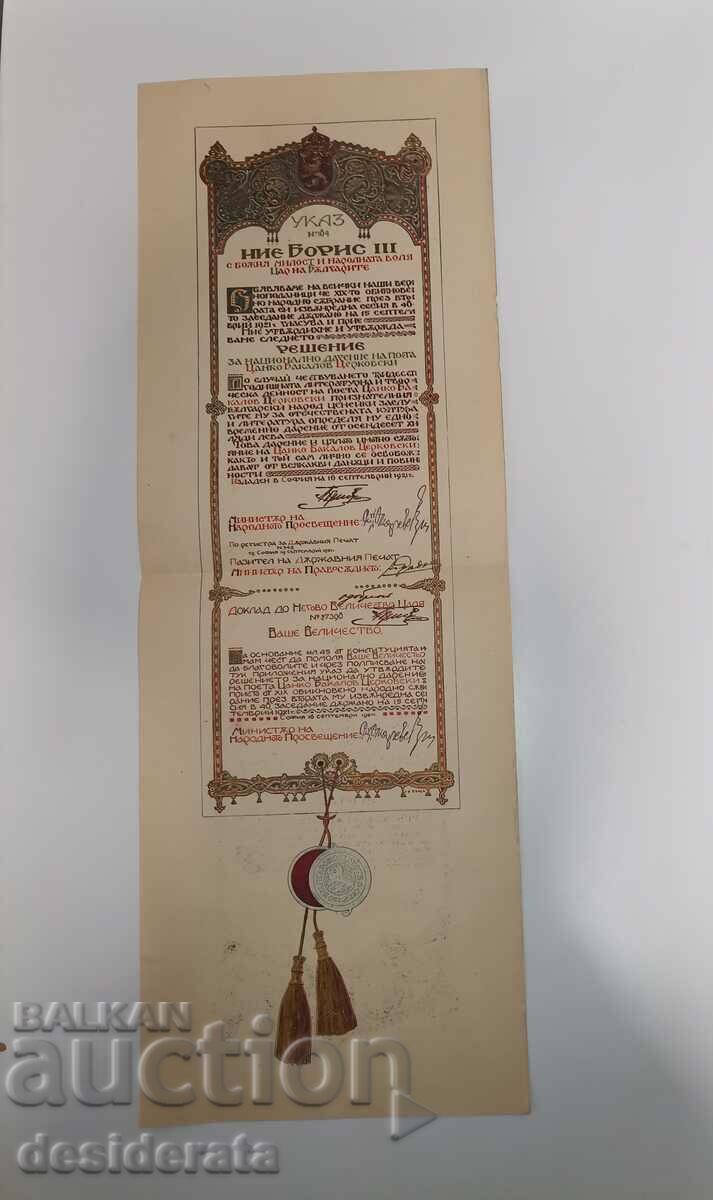 УКАЗ
НИЕ БОРИС III
С БОЖИЯ МИЛОСТ И НАРОДНАТА ВОЛЯ
ЦАР НА БЪЛГАРИТЕ
ОБЯВЯВАМЕ НА ВСИЧКИ НАШИ ВЕРНО
ПОДАНИЦИ ЧЕ XIX-ТО ОБИКНОВЕ
НО НАРОДНО СЪБРАНИЕ ПРЕЗ ВТО
РАТА СИ ИЗВЪНРЕДНА СЕСИЯ В 40
ТО ЗАСЕДАНИЕ ДЪРЖАНО НА 15 СЕПТЕМ
ВРИЙ 1921 Г. ГЛАСУВА И ПРИЕ
НИЕ УТВЪРДИХМЕ И УТВЪРЖДА
ВАМЕ СЛЕДНЕТО
РЕШЕНИЕ
ЗА НАЦИОНАЛНО ДАРЕНИЕ НА ПОЕТА
ЦАНКО БАКАЛОВ ЦЕРКОВСКИ
ПО СЛУЧАЙ ЧЕСТВУВАНЕТО ТРИДЕСЕТ
ГОДИШНАТА ЛИТЕРАТУРНА И ТВОР
ЧЕСКА ДЕЙНОСТ НА ПОЕТА ЦАНКО БА
КАЛОВ ЦЕРКОВСКИ ПРИЗНАТЕЛНИЯ
БЪЛГАРСКИ НАРОД ЦЕНЕЙКИ ЗАСЛУ
ГИТЕ МУ ЗА ОТЕЧЕСТВЕНАТА КУЛТУРА
И ЛИТЕРАТУРА ОПРЕДЕЛЯ МУ ЕДНО
ВРЕМЕННО ДАРЕНИЕ ОТ ОСЕНДЕСЕТ ХИ
ЛЯДИ ЛЕВА
ТОВА ДАРЕНИЕ И ЦЯЛОТО ИМОТНО СЪСТО
ЯНИЕ НА ЦАНКО БАКАЛОВ ЦЕРКОВСКИ
КАКТО И ТОЙ САМ ЛИЧНО СЕ ОСВОБОЖ
ДАВАТ ОТ ВСЯКАКВИ ДАНЪЦИ И ПОВИН
НОСТИ
ИЗДАДЕН В СОФИЯ НА 16 СЕПТЕМВРИЙ 1921 Г.
МИНИСТЪР НА
НАРОДНОТО ПРОСВЕЩЕНИЕ:
ПО РЕГИСТРА ЗА ДЪРЖАВНИЯ ПЕЧАТ
ПАЗИТЕЛ НА ДЪРЖАВНИЯ ПЕЧАТ
МИНИСТЪР НА ПРАВОСЪДИЕТО:
ДОКЛАД ДО НЕГОВО ВЕЛИЧЕСТВО ЦАРЯ
ВАШЕ ВЕЛИЧЕСТВО,
НА ОСНОВАНИЕ ЧЛ. 45 ОТ КОНСТИТУЦИЯТА И
МАМ ЧЕСТ ДА ПОМОЛЯ ВАШЕ ВЕЛИЧЕСТВО
ДА БЛАГОВОЛИТЕ И ЧРЕЗ ПОДПИСВАНЕ НА
ТУК ПРИЛОЖЕНИЯ УКАЗ ДА УТВЪРДИТЕ
РЕШЕНИЕТО ЗА НАЦИОНАЛНО ДАРЕНИЕ
НА ПОЕТА ЦАНКО БАКАЛОВ ЦЕРКОВСКИ
ПРИЕТО ОТ XIX ОБИКНОВЕНО НАРОДНО СЪБ
РАНИЕ ПРЕЗ ВТОРАТА МУ ИЗВЪНРЕДНА СЕ
СИЯ В 40. ЗАСЕДАНИЕ ДЪРЖАНО НА 15 СЕП
ТЕМВРИЙ 1921 Г.
СОФИЯ 16 СЕПТЕМВРИЙ 1921 Г.
МИНИСТЪР НА
НАРОДНОТО ПРОСВЕЩЕНИЕ:
BALKAN
auction
desiderata